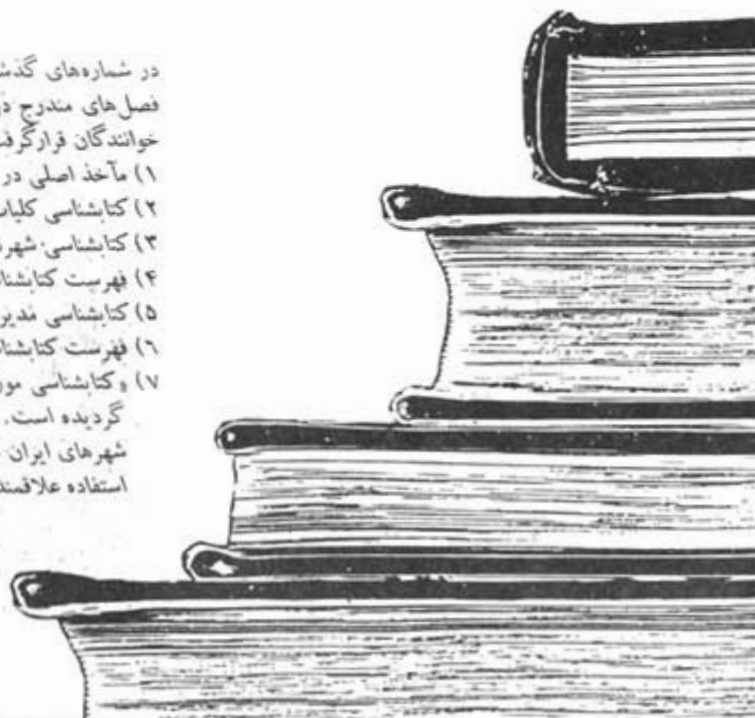 در شماره‌های گذش
فصل‌های مندرج در
خوانندگان قرار گرفت
۱) مآخذ اصلی در
۲) کتابشناسی کلیات
۳) کتابشناسی شهرن
۴) فهرست کتابشنا
۵) کتابشناسی مدیر
۶) فهرست کتابشنا
۷) و کتابشناسی مور
گردیده است.
شهرهای ایران
استفاده علاقمند